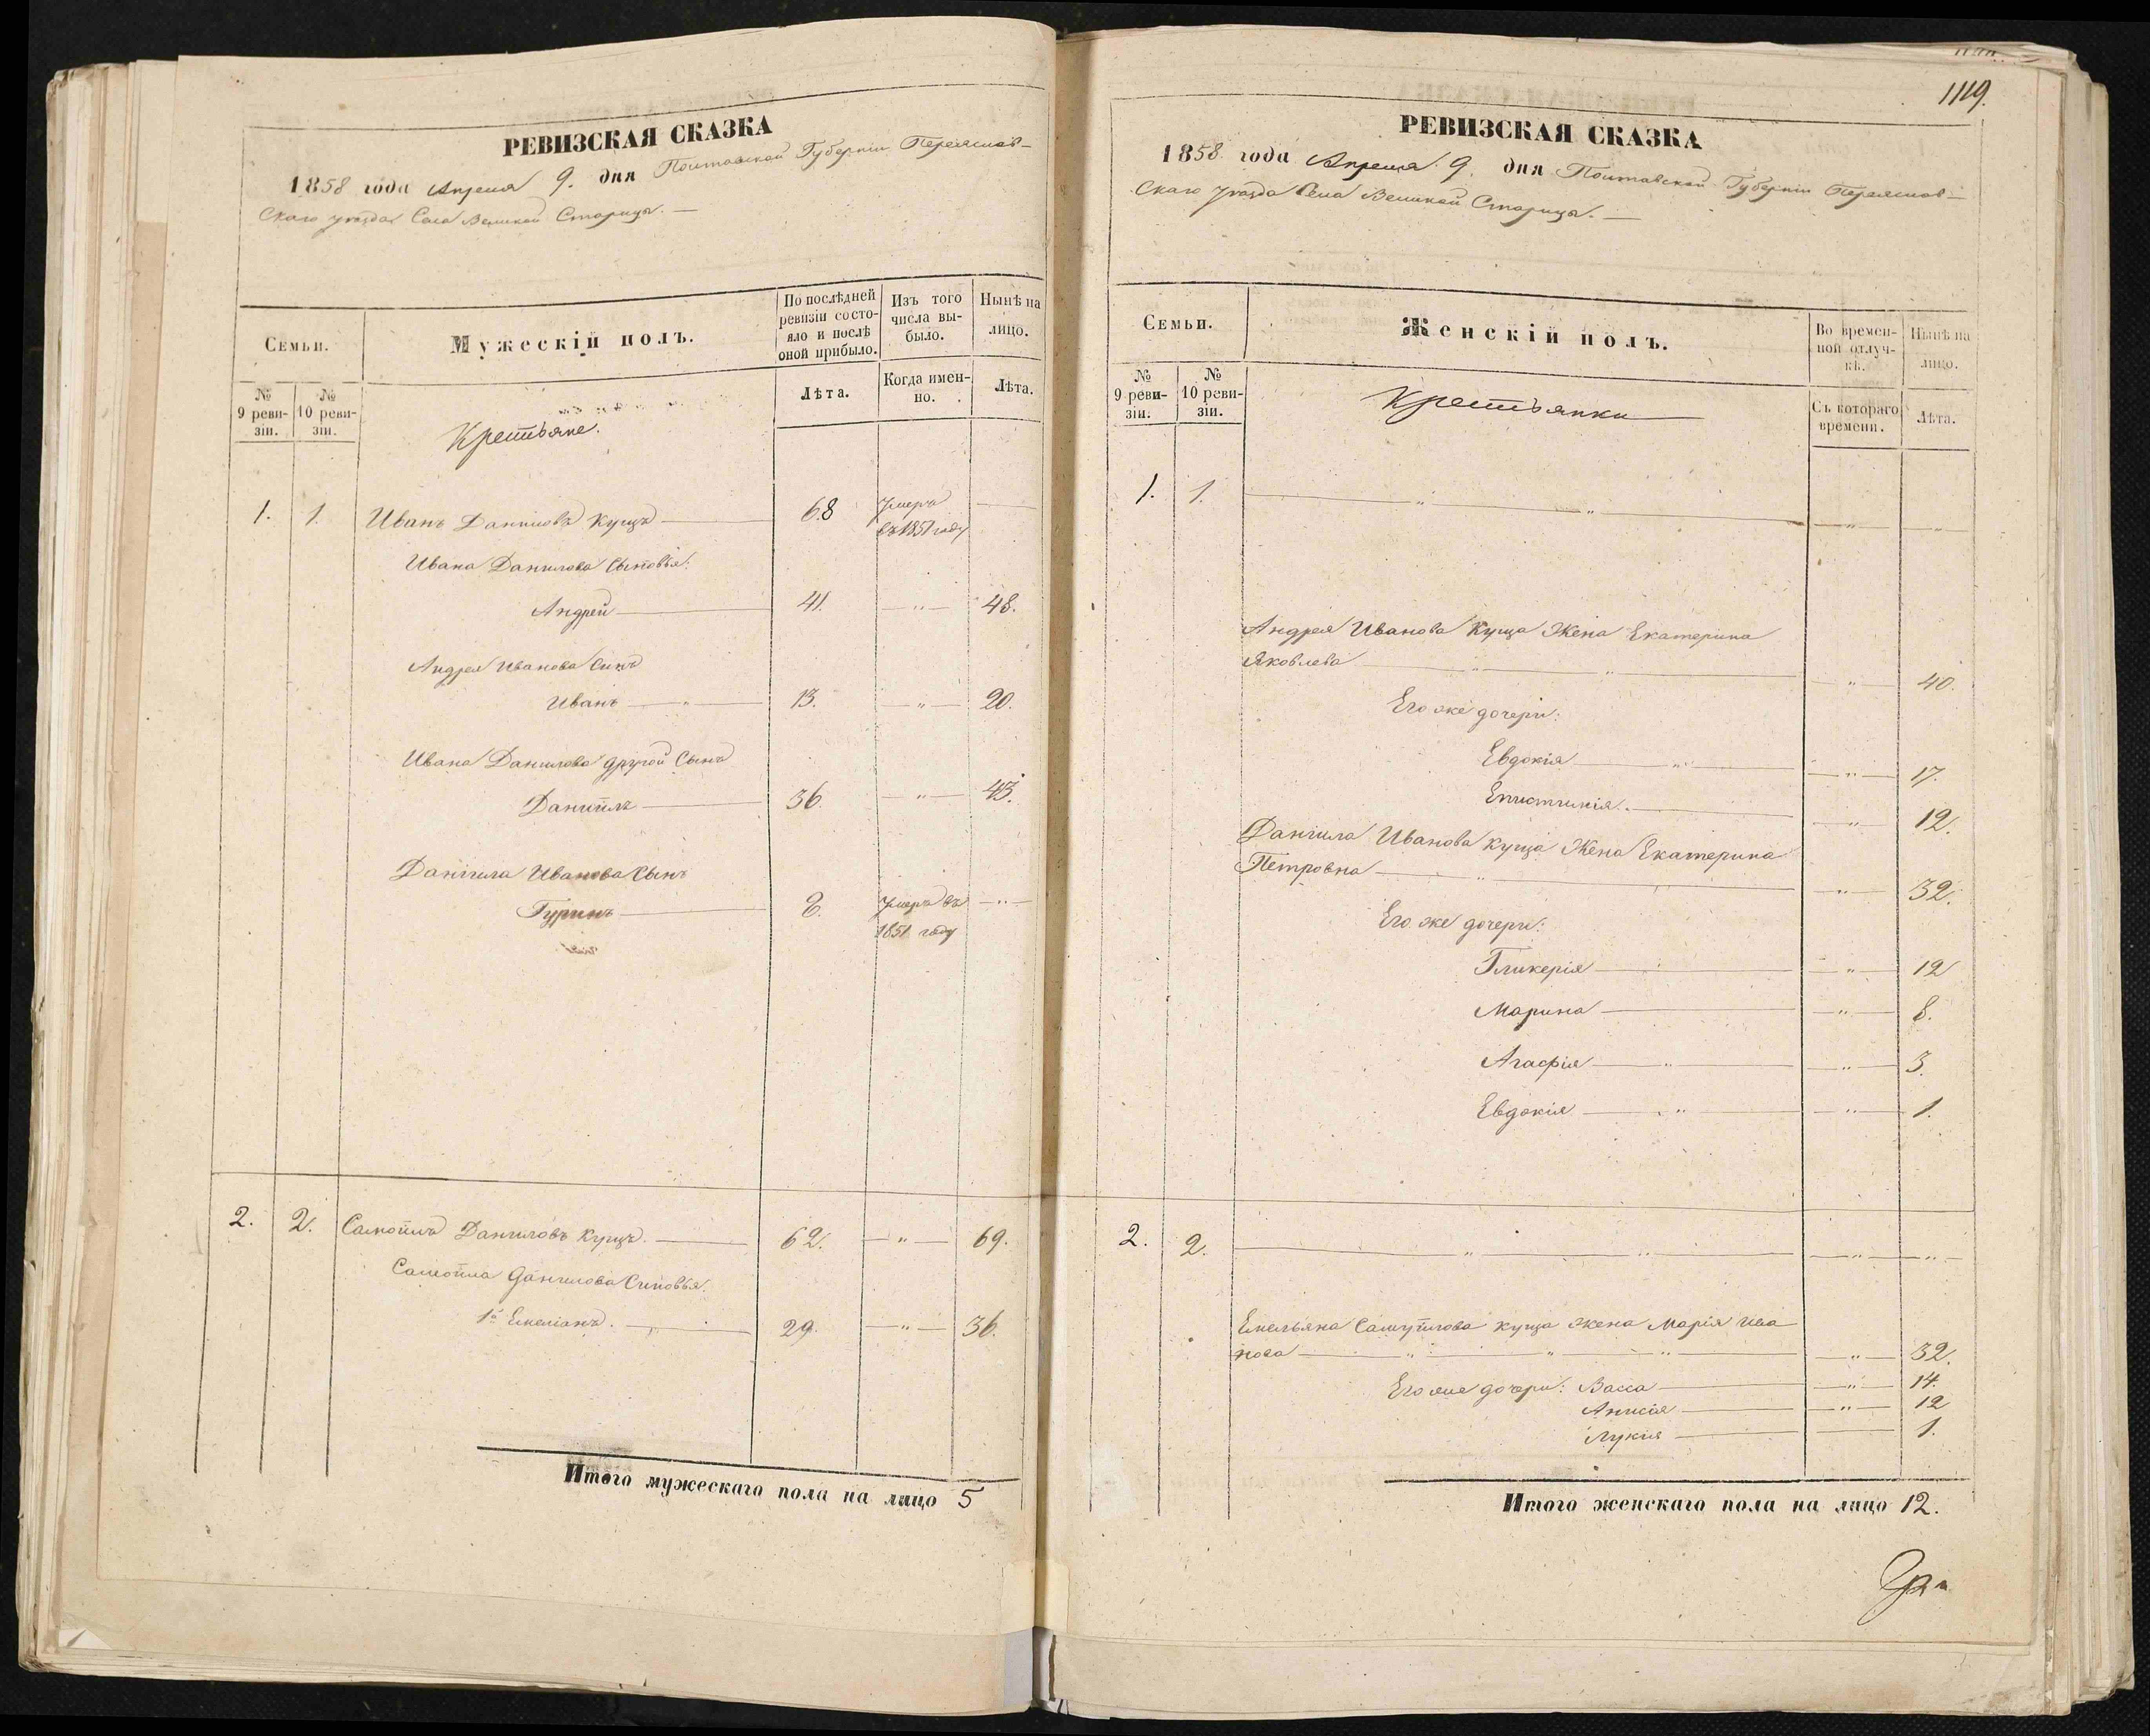 РЕВИЗСКАЯ СКАЗКА
1858 года Апреля 9. дня Полтавской Губерніи Переяслав-
скаго уезда Села Великой Старицы. —
Семьи.
Мужескій полъ.
По послѣдней ревизіи состо-
яло и послѣ оной прибыло.
Изъ того числа вы-
было.
Нынѣ на лицо.
№ 9 реви-
зіи.
№ 10 реви-
зіи.
Лѣта.
Когда имен-
но.
Лѣта.
Крестьяне.
1. 1. Иванъ Даниловъ Куцъ — 68 Умеръ —
въ 1851 году
Ивана Данилова Сыновья:
Андрей — 41. — " — 48.
Андрея Иванова Сынъ
Иванъ — " — 13. — " — 20.
Ивана Данилова другой Сынъ
Даніилъ — 36. — " — 43.
Даніила Иванова Сынъ
Гуринъ — 8. Умеръ въ — " —
1851 году
2. 2. Самойлъ Даниловъ Куцъ. — 62. — " — 69.
Самойла Данилова Сыновья.
1й Емеліанъ. — 29. — " — 36.
Итого мужескаго пола на лицо 5
1119.
РЕВИЗСКАЯ СКАЗКА
1858 года Апреля 9. дня Полтавской Губерніи Переяслав-
скаго уезда Села Великой Старицы. —
Семьи.
Женскій полъ.
Во времен-
ной отлуч-
кѣ.
Нынѣ на лицо.
№ 9 реви-
зіи.
№ 10 реви-
зіи.
Съ котораго времени.
Лѣта.
Крестьянки
1. 1. — " — " — " — "
Андрея Иванова Куца Жена Екатерина
Яковлева — " — " — " — 40.
Его же дочери:
Евдокія — " — " — 17.
Епистинія. — " — 12.
Даніила Иванова Куца Жена Екатерина
Петровна — " — " — 32.
Его же дочери:
Гликерія — " — 12
Марина — " — 8.
Агафія — " — " — 3.
Евдокія — " — " — 1.
2. 2. — " — " — " — " —
Емельяна Самуйлова Куца жена Марія Ива
нова — " — " — " — " — 32.
Его же дочери: Васса — " — 14.
Анисія — " — 12
Лукія — 1.
Итого женскаго пола на лицо 12.